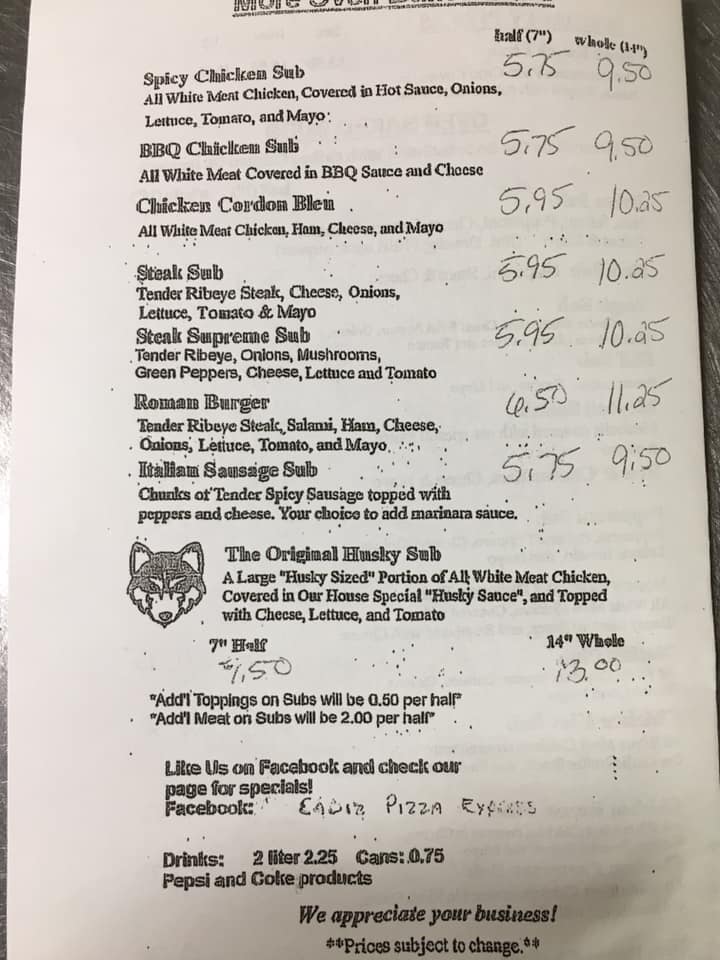 half (7") whole (14")
Spicy Chicken Sub 5.75 9.50
All White Meat Chicken, Covered in Hot Sauce, Onions,
Lettuce, Tomato, and Mayo
BBQ Chicken Sub 5.75 9.50
All White Meat Covered in BBQ Sauce and Cheese
Chicken Cordon Bleu 5.95 10.25
All White Meat Chicken, Ham, Cheese, and Mayo
Steak Sub 5.95 10.25
Tender Ribeye Steak, Cheese, Onions,
Lettuce, Tomato & Mayo
Steak Supreme Sub 5.95 10.25
Tender Ribeye, Onions, Mushrooms,
Green Peppers, Cheese, Lettuce and Tomato
Roman Burger 6.50 11.25
Tender Ribeye Steak, Salami, Ham, Cheese,
Onions, Lettuce, Tomato, and Mayo
Italian Sausage Sub 5.75 9.50
Chunks of Tender Spicy Sausage topped with
peppers and cheese. Your choice to add marinara sauce.
The Original Husky Sub
A Large "Husky Sized" Portion of All White Meat Chicken,
Covered in Our House Special "Husky Sauce", and Topped
with Cheese, Lettuce, and Tomato
7" Half 14" Whole
7.50 13.00
"Add'l Toppings on Subs will be 0.50 per half"
"Add'l Meat on Subs will be 2.00 per half"
Like Us on Facebook and check our
page for specials!
Facebook: Cadiz Pizza Express
Drinks: 2 liter 2.25 Cans: 0.75
Pepsi and Coke products
We appreciate your business!
**Prices subject to change.**